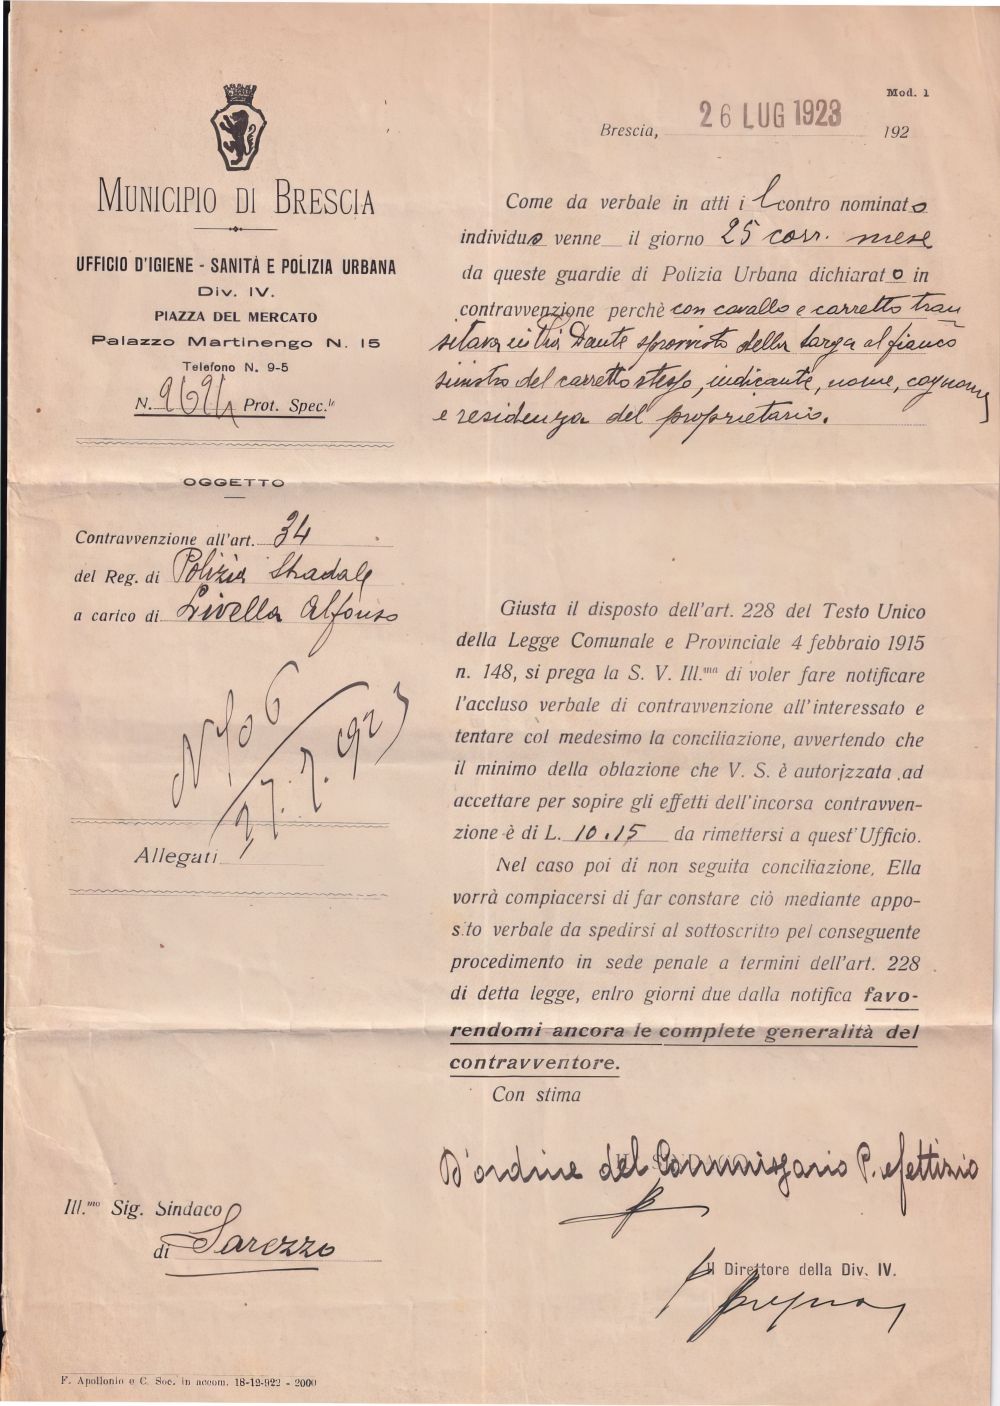 MUNICIPIO DI BRESCIA
UFFICIO D'IGIENE - SANITÀ E POLIZIA URBANA
Div. IV.
PIAZZA DEL MERCATO
Palazzo Martinengo N. 15
Telefono N. 9-5
N. 9694 Prot. Spec.le
OGGETTO
Contravvenzione all'art. 34
del Reg. di Polizia Stradale
a carico di Livella Alfonso
N 706
27.7.923
Allegati 1
Ill.mo Sig. Sindaco
di Sarezzo
F. Apollonio e C. Soc. in accom. 18-12-922 - 2000
Mod. 1
Brescia, 26 LUG 1923 192
Come da verbale in atti i l contro nominato
individuo venne il giorno 25 corr. mese
da queste guardie di Polizia Urbana dichiarato in
contravvenzione perchè con cavallo e carretto tran
sitava in Via Dante sprovvisto della targa al fianco
sinistro del carretto stesso, indicante, nome, cognome
e residenza del proprietario.
Giusta il disposto dell'art. 228 del Testo Unico
della Legge Comunale e Provinciale 4 febbraio 1915
n. 148, si prega la S. V. Ill.ma di voler fare notificare
l'accluso verbale di contravvenzione all'interessato e
tentare col medesimo la conciliazione, avvertendo che
il minimo della oblazione che V. S. è autorizzata ad
accettare per sopire gli effetti dell'incorsa contravven-
zione è di L. 10.15 da rimettersi a quest'Ufficio.
Nel caso poi di non seguita conciliazione, Ella
vorrà compiacersi di far constare ciò mediante appo-
sito verbale da spedirsi al sottoscritto pel conseguente
procedimento in sede penale a termini dell'art. 228
di detta legge, entro giorni due dalla notifica favo-
rendomi ancora le complete generalità del
contravventore.
Con stima
D'ordine del Commissario Prefettizio
Il Direttore della Div. IV.